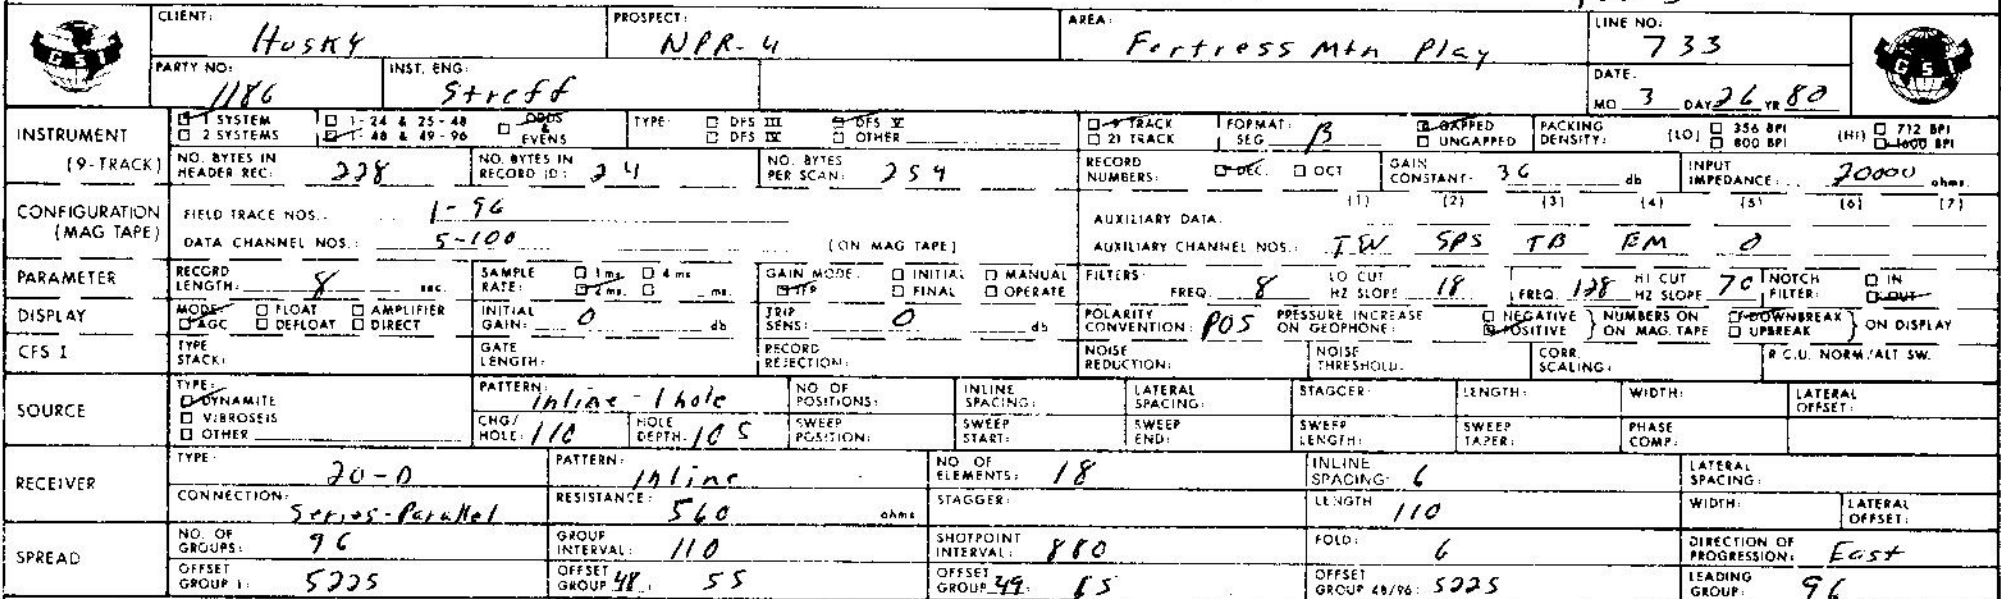 CLIENT: Husky PROSPECT: NPR-4 AREA: Fortress Mtn Play LINE NO: 733
GSI PARTY NO: 1186 INST. ENG: Streff DATE. MO 3 DAY 26 YR 80 GSI
INSTRUMENT (9-TRACK) 1 SYSTEM 2 SYSTEMS 1-24 & 25-48 1-48 & 49-96 ODDS & EVENS TYPE: DFS III DFS IV DFS V OTHER 9 TRACK 21 TRACK FORMAT: SEG B GAPPED UNGAPPED PACKING DENSITY: (LO) 356 BPI 800 BPI (HI) 712 BPI 1600 BPI
NO. BYTES IN HEADER REC: 228 NO. BYTES IN RECORD ID: 24 NO. BYTES PER SCAN: 254 RECORD NUMBERS: DEC. OCT GAIN CONSTANT- 36 db INPUT IMPEDANCE: 20000 ohms.
CONFIGURATION (MAG TAPE) FIELD TRACE NOS.. 1-96 AUXILIARY DATA. (1) (2) (3) (4) (5) (6) (7)
DATA CHANNEL NOS.: 5-100 (ON MAG TAPE) AUXILIARY CHANNEL NOS.: TW SPS TB EM 0
PARAMETER RECORD LENGTH: 8 sec. SAMPLE RATE: 1 ms. 4 ms 2 ms. ms. GAIN MODE. IFP INITIAL FINAL MANUAL OPERATE FILTERS: FREQ. 8 LO CUT HZ SLOPE 18 FREQ 128 HI CUT HZ SLOPE 70 NOTCH FILTER: IN OUT
DISPLAY MODE: AGC FLOAT DEFLOAT AMPLIFIER DIRECT INITIAL GAIN: 0 db TRIP SENS: 0 db POLARITY CONVENTION: POS PRESSURE INCREASE ON GEOPHONE: NEGATIVE POSITIVE NUMBERS ON ON MAG. TAPE DOWNBREAK UPBREAK ON DISPLAY
CFS I TYPE STACK: GATE LENGTH: RECORD REJECTION: NOISE REDUCTION: NOISE THRESHOLD. CORR. SCALING: R.C.U. NORM./ALT SW.
SOURCE TYPE: DYNAMITE VIBROSEIS OTHER PATTERN: Inline - 1 hole NO OF POSITIONS: INLINE SPACING: LATERAL SPACING: STAGGER: LENGTH: WIDTH: LATERAL OFFSET:
CHG/HOLE: 110 HOLE DEPTH. 105 SWEEP POSITION: SWEEP START: SWEEP END: SWEEP LENGTH: SWEEP TAPER: PHASE COMP:
RECEIVER TYPE: 20-D PATTERN: Inline NO OF ELEMENTS: 18 INLINE SPACING: 6 LATERAL SPACING:
CONNECTION: Series-Parallel RESISTANCE: 560 ohms STAGGER: LENGTH 110 WIDTH: LATERAL OFFSET:
SPREAD NO. OF GROUPS: 96 GROUP INTERVAL: 110 SHOTPOINT INTERVAL: 880 FOLD: 6 DIRECTION OF PROGRESSION: East
OFFSET GROUP 1: 5225 OFFSET GROUP 48: 55 OFFSET GROUP 49: OFFSET GROUP 48/96: 5225 LEADING GROUP: 96